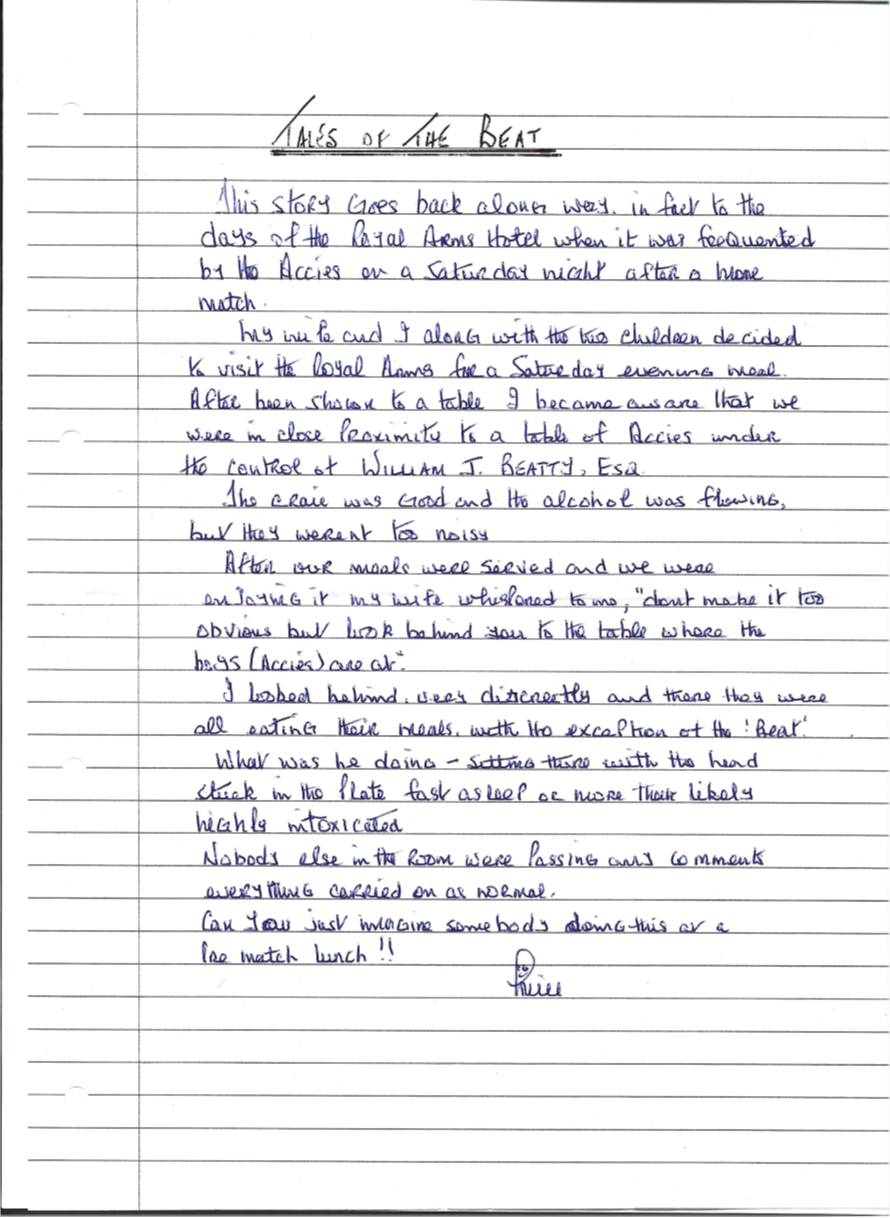 TALES OF THE BEAT
This story goes back a long way, in fact to the
days of the Royal Arms Hotel when it was frequented
by the Accies on a Saturday night after a home
match.
My wife and I along with the two children decided
to visit the Royal Arms for a Saturday evening meal.
After been shown to a table I became aware that we
were in close proximity to a table of Accies under
the control of WILLIAM J. BEATTY, ESQ.
The craic was good and the alcohol was flowing,
but they werent too noisy
After our meals were served and we were
enjoying it my wife whispered to me, "dont make it too
obvious but look behind you to the table where the
boys (Accies) are at".
I looked behind, very discreetly and there they were
all eating their meals, with the exception of the 'Beat'
What was he doing - sitting there with the head
stuck in the plate fast asleep or more than likely
highly intoxicated
Nobody else in the room were passing any comments
everything carried on as normal.
Can you just imagine somebody doing this at a
pre match lunch !!